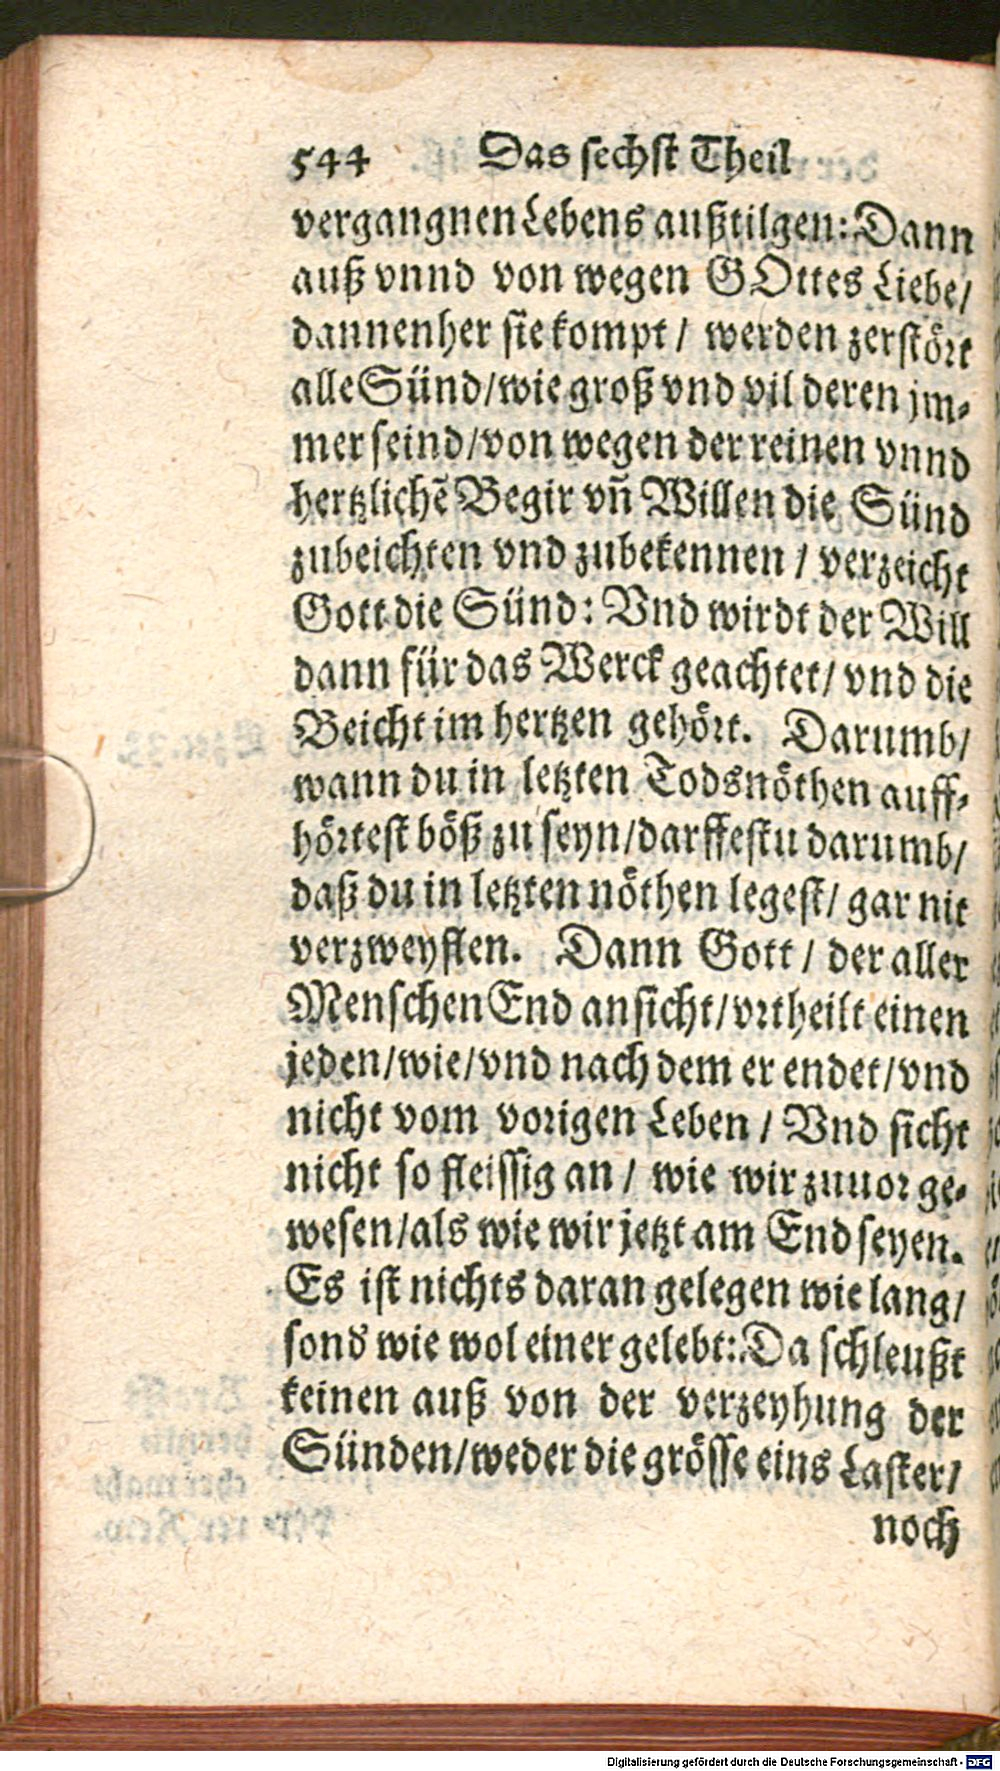 544 Das sechst Theil
vergangnen Lebens außtilgen: Dann
auß vnnd von wegen GOttes Liebe/
dannenher sie kompt / werden zerstört
alle Sünd/wie groß vnd vil deren jm-
mer seind/von wegen der reinen vnnd
hertzlichẽ Begir vñ Willen die Sünd
zubeichten vnd zubekennen / verzeicht
Gott die Sünd: Vnd wirdt der Will
dann für das Werck geachtet/ vnd die
Beicht im hertzen gehört. Darumb/
wann du in letzten Todsnöthen auff-
hörtest böß zu seyn/darffestu darumb/
daß du in letzten nöthen legest/ gar nit
verzweyflen. Dann Gott / der aller
Menschen End ansicht/vrtheilt einen
jeden/wie/vnd nach dem er endet/vnd
nicht vom vorigen Leben / Vnd sicht
nicht so fleissig an / wie wir zuuor ge-
wesen/als wie wir jetzt am End seyen.
Es ist nichts daran gelegen wie lang/
sond wie wol einer gelebt: Da schleußt
keinen auß von der verzeyhung der
Sünden/weder die grösse eins Laster/
noch
Digitalisierung gefördert durch die Deutsche Forschungsgemeinschaft - DFG